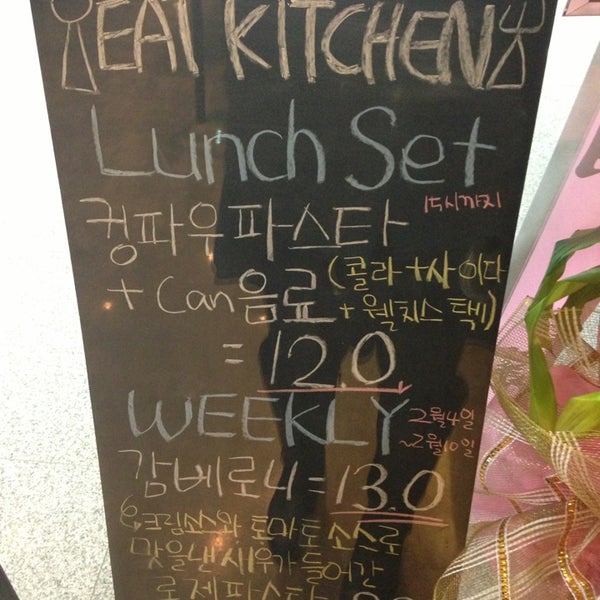 EAT KITCHEN
Lunch Set
15시까지
컹파우파스타
+ Can음료 (콜라+사이다
+ 웰치스 택1)
= 12.0
WEEKLY 2월4일
~2월10일
감베로니 = 13.0
크림소스와 토마토 소스로
맛을낸 새우가 들어간
로제파스타